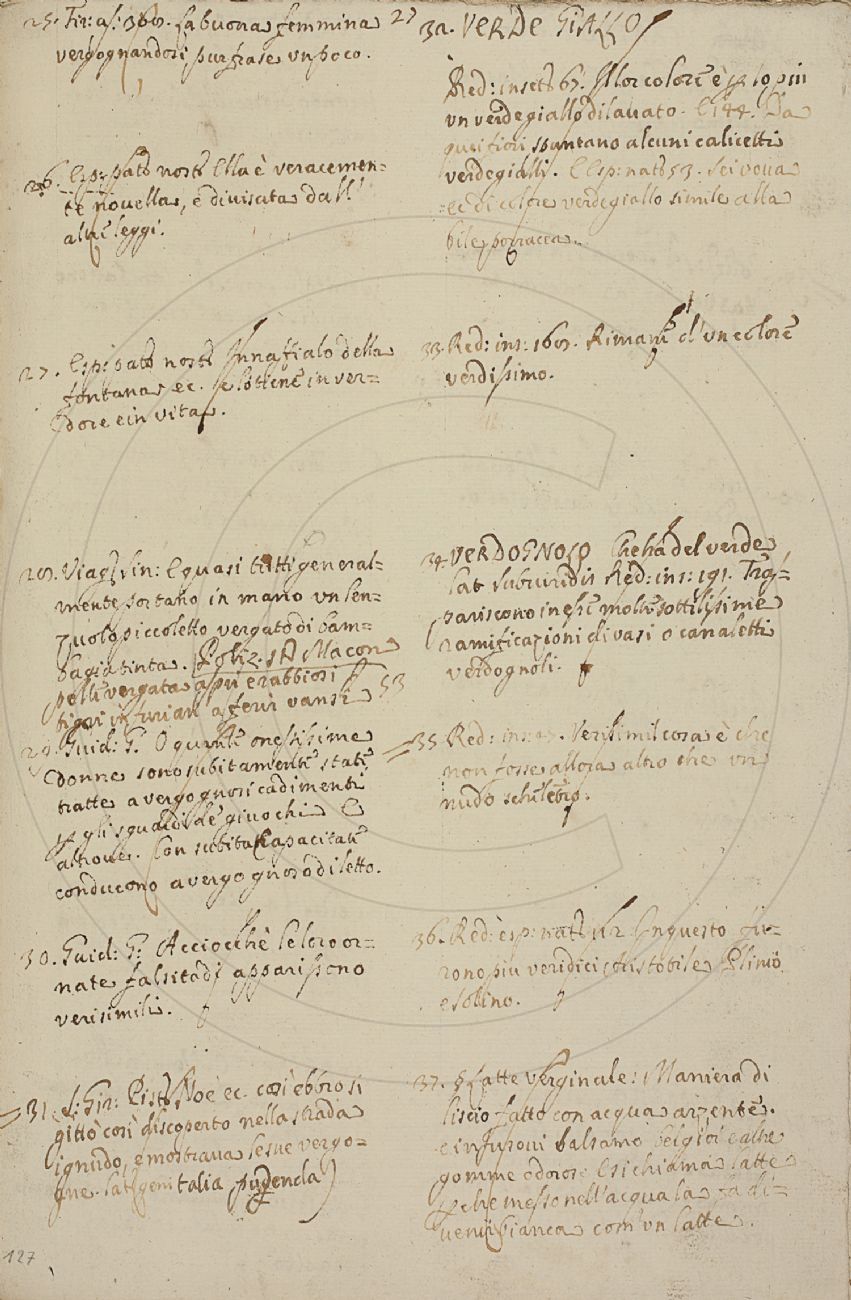 25. Fir: as: 360. La buona femmina
vergognandosi, pur frase un poco.
26. Esp: pat: nost: Ella è veracemen=
te novella, e divisata dall'
altre leggi.
27. Esp: pat: nost: Innaffialo della
fontana ec. se lo ttiene in ver=
dore e in vita.
28. Viag: Sin: E quasi tutti general=
mente portano in mano un len=
zuolo piccoletto vergato di bam=
bagia tinta. Poliz. st A Macon
pelle vergata a più e rabbiosi
tigri infurian' a ferir vansi 53
29. Guid: G. O quante onestissime
donne sono subitamente state
tratte a vergognosi cadimenti
per gli sguardi de' giuochi. E
altrove. Con subita capacitate
conducono a vergognoso diletto.
30. Guid: G: Acciocchè le loro or=
nate falsitadi apparissono
verisimili.
31. S: Gir: Pist: Noè ec. così ebbro si
gittò così discoperto nella strada
ignudo, e mostrava le sue vergo=
gne. lat: genitalia pudenda
27
32. VERDE GIALLO
Red: insett: 65. Il lor colore è per lo più
un verdegiallo dilavato. E 144. Da
questi fiori spuntano alcuni calicetti
verdegialli. E Esp: nat: 53.
ec di colore verdegiallo simile alla
bile porracea.
33. Red: ins: 160. Rimane d'un colore
verdissimo.
34. VERDOGNOLO Che ha del verde
lat subviridis Red: ins: 191. Trap=
pariscono in esse molte sottilissime
ramificazioni di vasi o canaletti
verdognoli.
35. Red: ins: Verisimil cosa è che
non fosse allora altro che un
nudo scheletro.
36. Red: esp: nat: In questo fu=
rono più veridici Aristotile Plinio
e Solino.
37. § Latte verginale: Maniera di
liscio fatto con acqua arzente.
e infusovi balsamo belgioi e altre
gomme odorose E si chiama latte
perche messo nell'acqua la fa di=
venir bianca com' un latte.
127